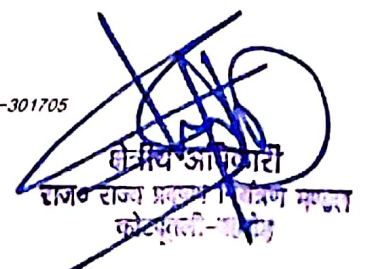 -301705
क्षेत्रीय अधिकारी
राज० राज्य प्रदूषण नियंत्रण मण्डल
कोटपूतली-बहरोड़